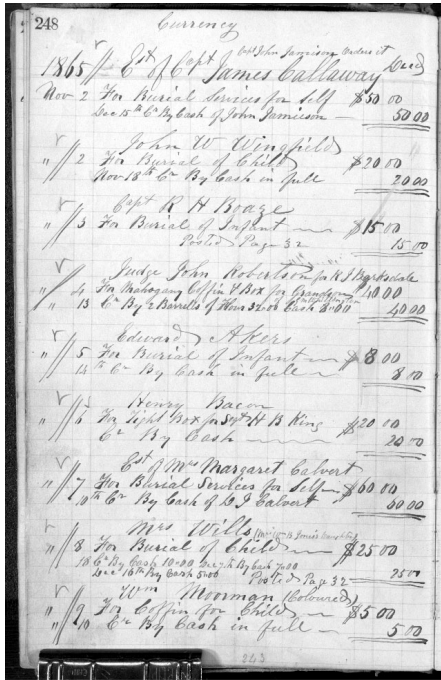 248
Currency
Capt John Jamison Undert
1865 Est of Capt James Callaway Decd
Nov 2 For Burial Services for Self $50 00
Dec 15th Cr By Cash of John Jamieson 50 00
John W Wingfield
" 2 For Burial of Child $20 00
Nov 18th Cr By Cash in full 20 00
Capt R H Boage
" 3 For Burial of Infant $15 00
Posted Page 32 15 00
Judge John Robertson for R J Barksdale
" 4 For Mahogany Coffin & Box for Grandson $40 00
" 13 Cr By 2 Barrells of Flour 32 00 Cash 8 00 40 00
Edward Akers
" 5 For Burial of Infant $8 00
14 Cr By Cash in full 8 00
Henry Bacon
" 6 For Tight Box for Sergt H B King $20 00
Cr By Cash 20 00
Est of Mrs Margaret Calvert
" 7 For Burial Services for Self $60 00
10th Cr By Cash of D J Calvert 60 00
Mrs Wills
" 8 For Burial of Child $25 00
10 Cr By Cash 10 00 Dec 7th By Cash 7 00
Dec 16th By Cash 5 00 Posted Page 32 25 00
Wm Moorman (Coloured)
" 9 For Coffin for Child $5 00
" 10 Cr By Cash in full 5 00
243